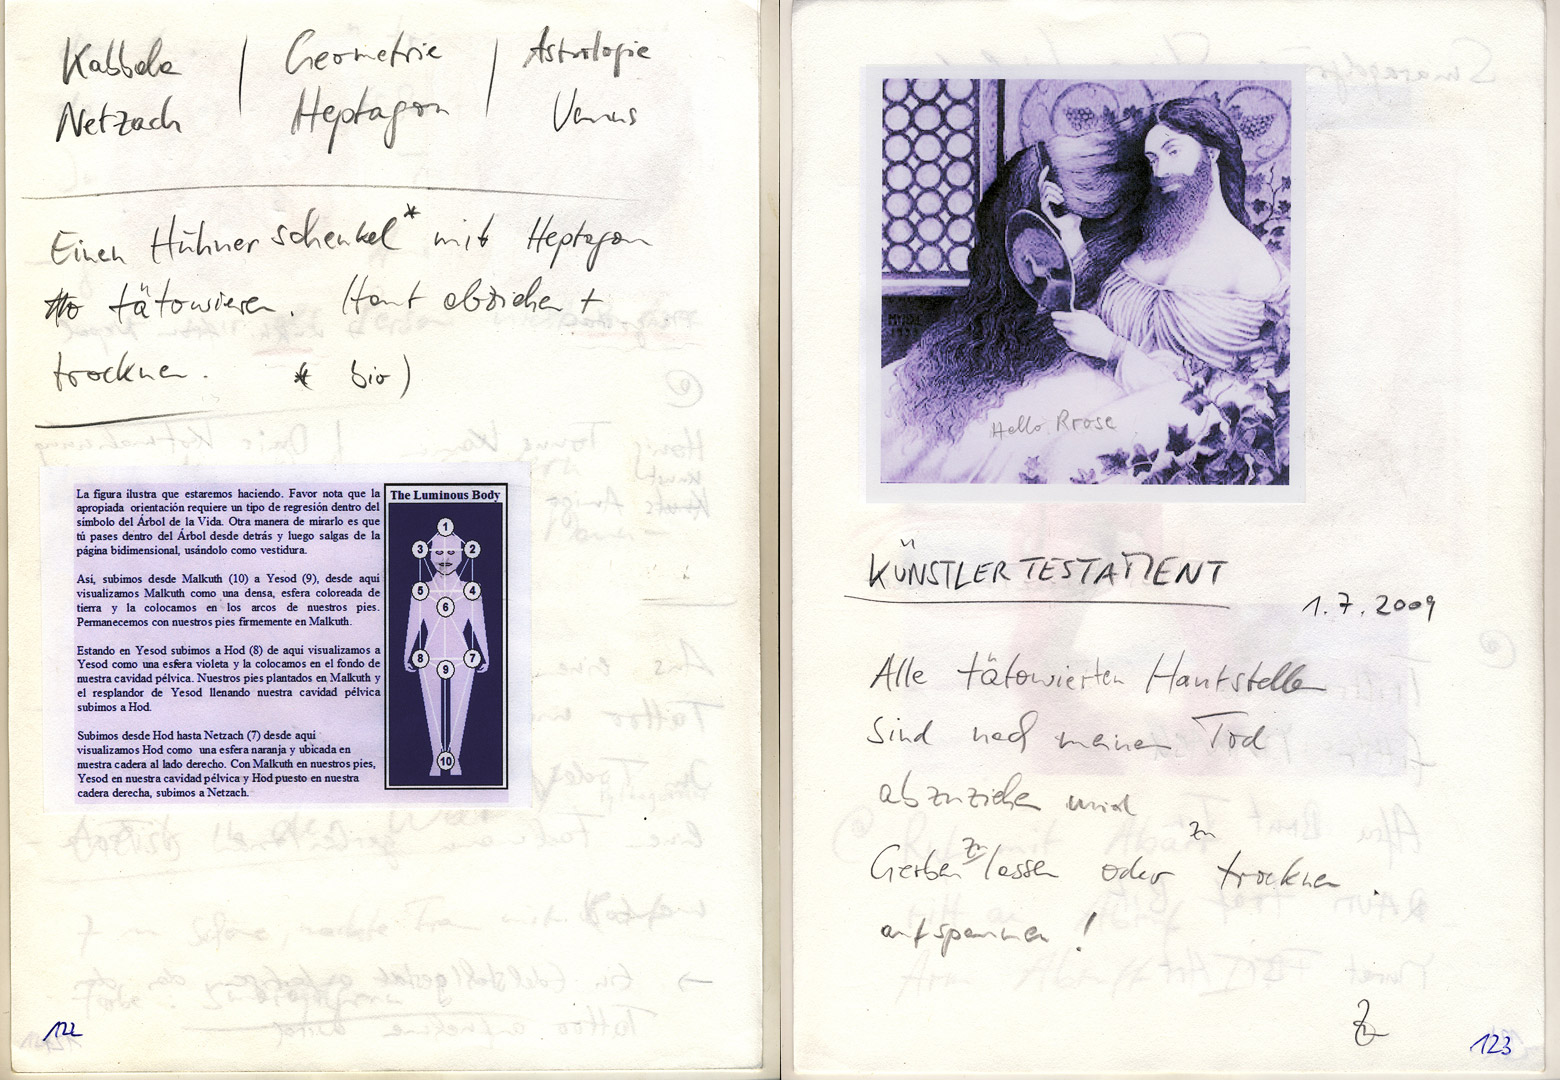 Kabbala | Geometrie | Astrologie
Netzach | Heptagon | Venus
Einen Hühnerschenkel* mit Heptagon
tätowieren. Haut abziehen +
trocknen. * bio)
La figura ilustra que estaremos haciendo. Favor nota que la
apropiada orientación requiere un tipo de regresión dentro del
símbolo del Árbol de la Vida. Otra manera de mirarlo es que
tú pases dentro del Árbol desde detrás y luego salgas de la
página bidimensional, usándolo como vestidura.
Así, subimos desde Malkuth (10) a Yesod (9), desde aquí
visualizamos Malkuth como una densa, esfera coloreada de
tierra y la colocamos en los arcos de nuestros pies.
Permanecemos con nuestros pies firmemente en Malkuth.
Estando en Yesod subimos a Hod (8) de aquí visualizamos a
Yesod como una esfera violeta y la colocamos en el fondo de
nuestra cavidad pélvica. Nuestros pies plantados en Malkuth y
el resplandor de Yesod llenando nuestra cavidad pélvica
subimos a Hod.
Subimos desde Hod hasta Netzach (7) desde aquí
visualizamos Hod como una esfera naranja y ubicada en
nuestra cadera al lado derecho. Con Malkuth en nuestros pies,
Yesod en nuestra cavidad pélvica y Hod puesto en nuestra
cadera derecha, subimos a Netzach.
The Luminous Body
1
3 2
5 4
6
8 7
9
10
122
Hello Rrose
KÜNSTLERTESTAMENT
1.7.2009
Alle tätowierten Hautstellen
sind nach meinem Tod
abzuziehen und
Gerben zu lassen oder zu trocknen.
aufspannen!
123